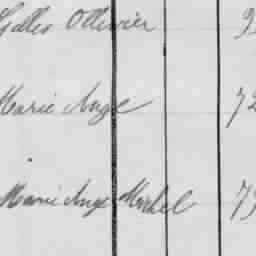 Galles Ollivier 9
Marie Ange 72
Marie Ange Michel 79